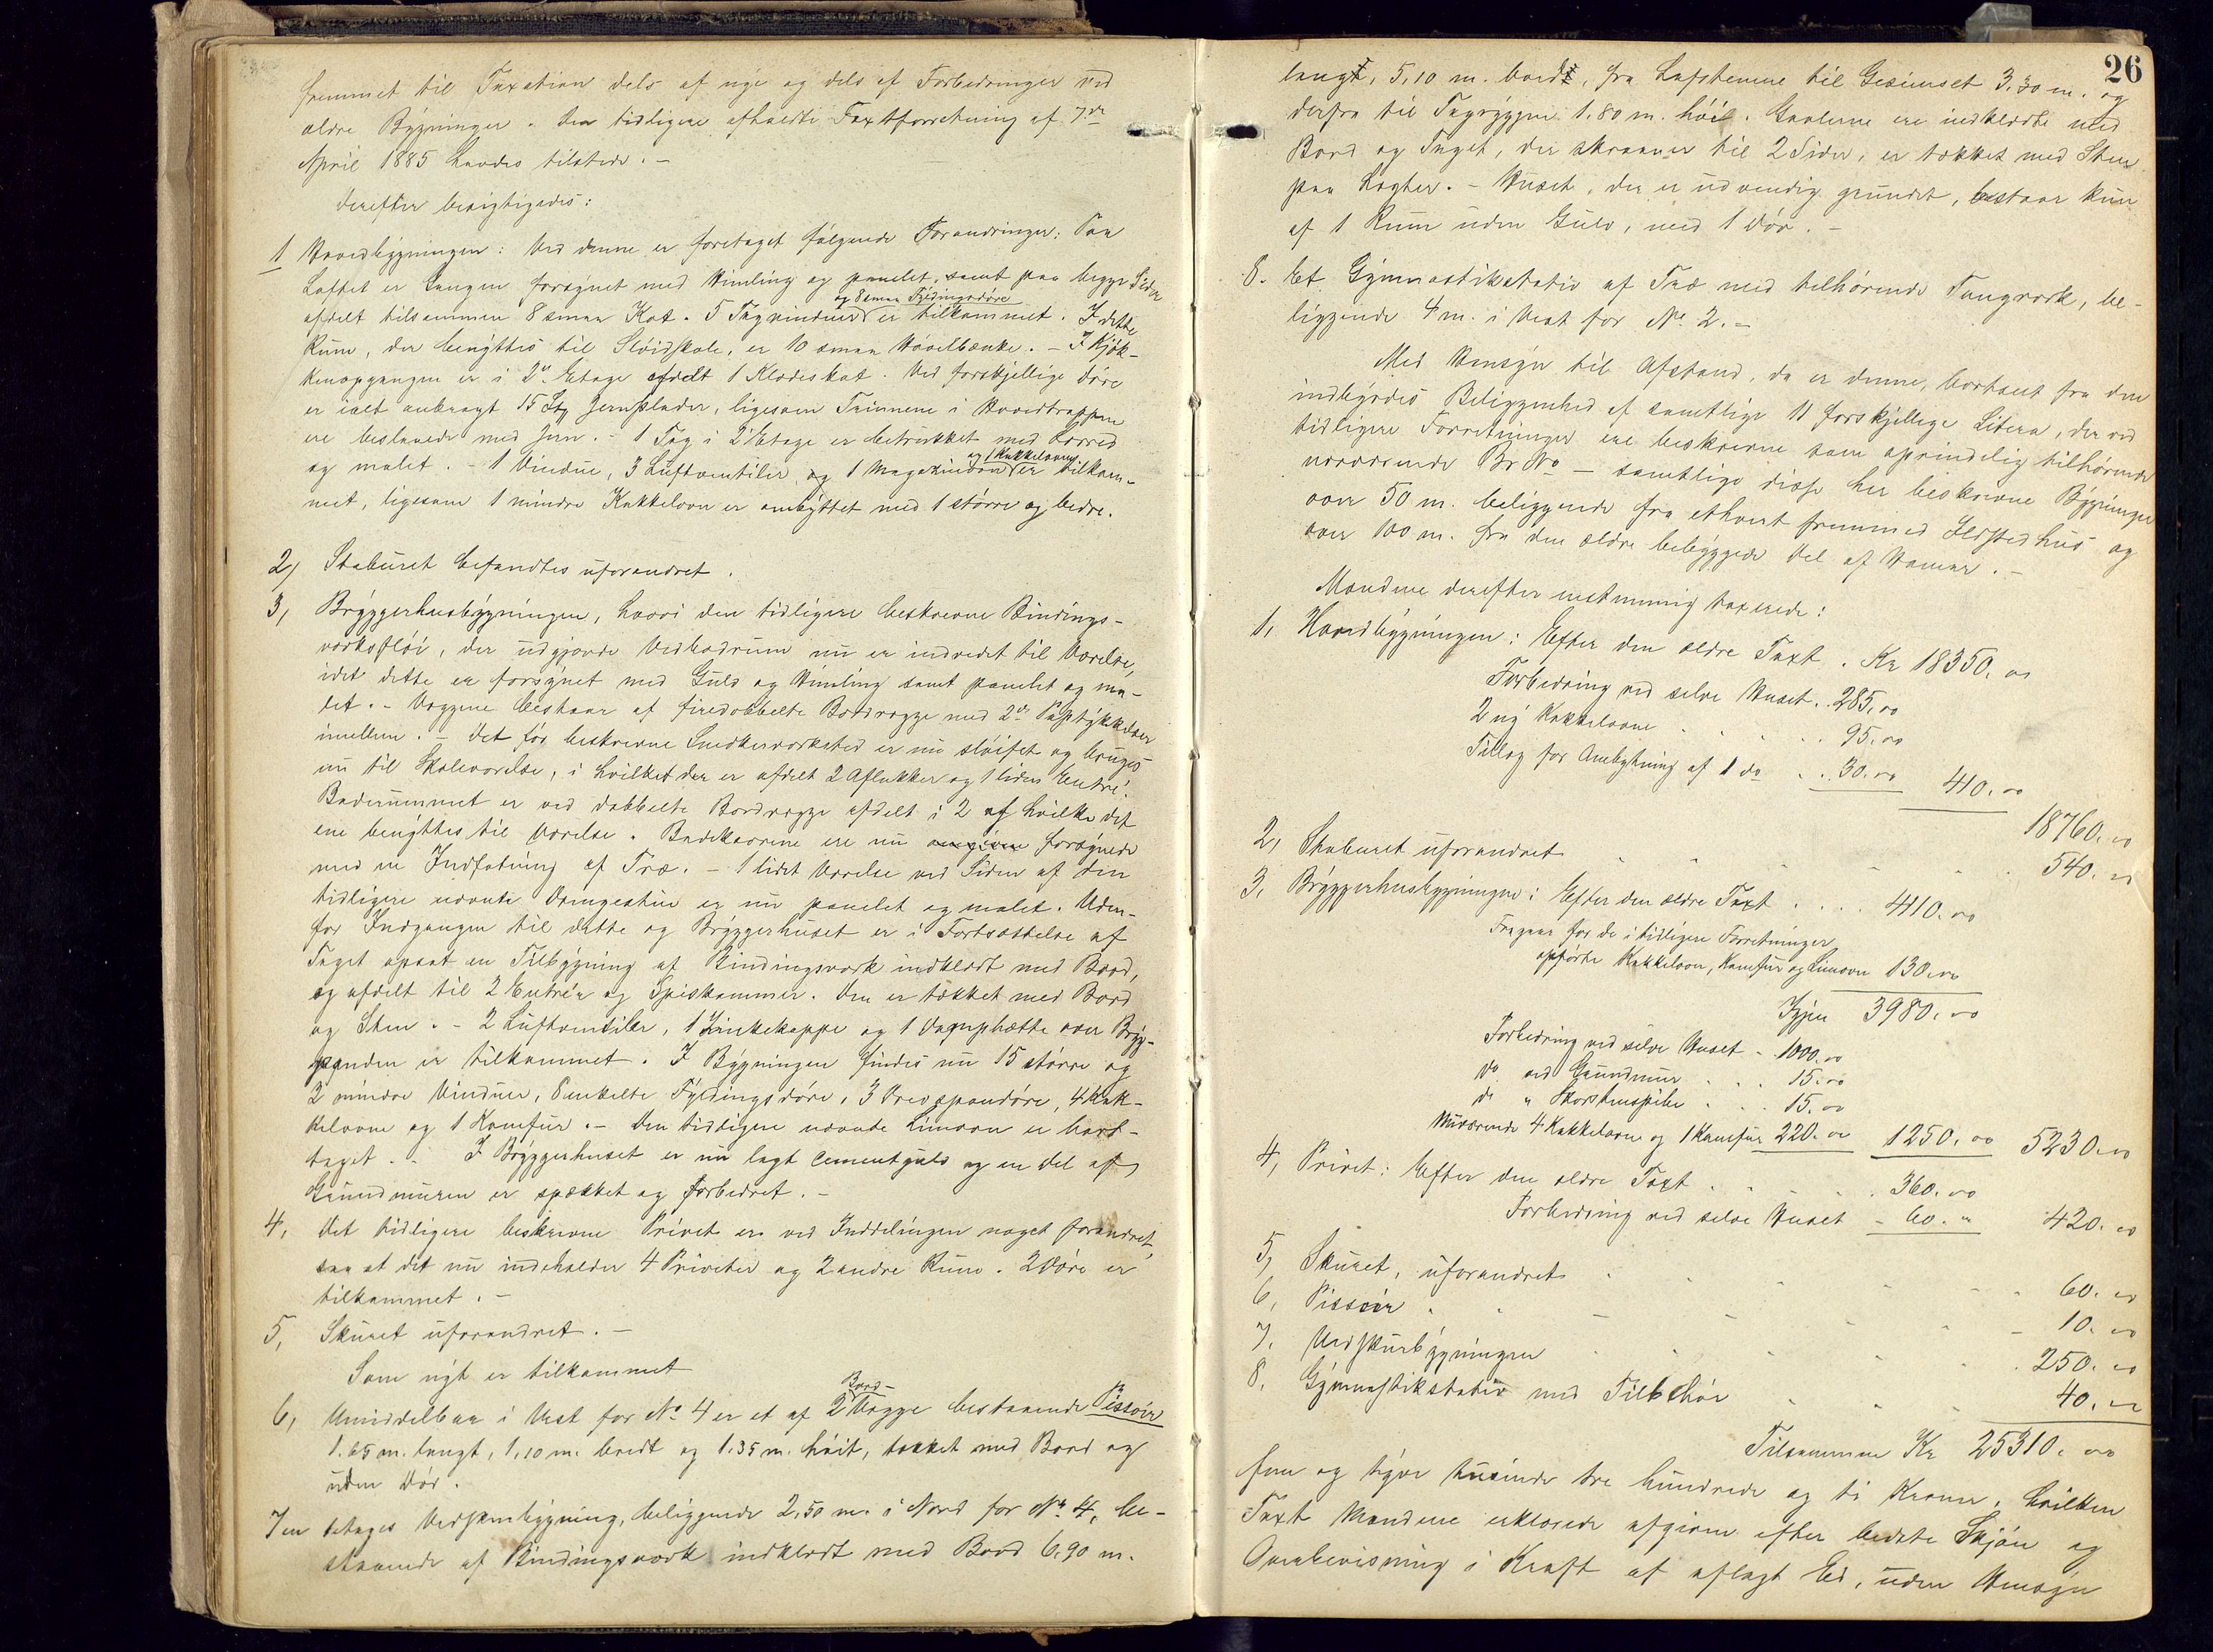 fremmet til Taxation dels af nye og dels af Forbedringer ved
ældre Bygninger. Den tidligere afholdte Taxtforretning af 7de
April 1885 havdes tilstede. –
Derefter besigtigedes:
1 Hovedbygningen: Ved denne er foretaget følgende Forandringer: Paa
Loftet er Gangen forsynet med Himling og panelet, samt paa begge Sider
og 8 smaa Fyldingsdøre
afdelt tilsammen 8 smaa Kot. 5 Tagvinduer er tilkommet. I dette
Rum, der benyttes til Sløidskole, er 10 smaa Høvelbænke. – I Kjøk-
kenopgangen er i 2den Etage afdelt 1 Klædeskot. Ved forskjellige Døre
er ialt anbragt 15 Stg Jernplader, ligesom Trinnene i Hovedtrappen
ere beslaaede med Jern. – 1 Tag i 2 Etage er betrukket med Lærred
og 1 Kakkelovn
og malet. – 1 Vindue, 3 Luftventiler og 1 Magazinovn er tilkom-
met, ligesom 1 mindre Kakkelovn er ombyttet med 1 større og bedre.
2, Staburet befandtes uforandret.
3, Bryggerhusbygningen, hvori den tidligere beskrevne Bindings-
værksfløi, der udgjorde Vedbodrum nu er indredet til Værelse,
idet dette er forsynet med Gulv og Himling samt panelet og ma-
let. – Væggene bestaar af firedobbelte Bordvægge med 2de Paptykkelser
imellem. – Det før beskrevne Snedkerværksted er nu sløifet og bruges
nu til Skoleværelse, i hvilket der er afdelt 2 Aflukker og 1 liden Entré.
Baderummet er ved dobbelte Bordvægge afdelt i 2 af hvilke det
ene benyttes til Værelse. Badekarrene ere nu omgivne forsynede
med en Indfatning af Træ. – 1 lidet Værelse ved Siden af den
tidligere nævnte Drengestue er nu panelet og malet. Uden-
for Indgangen til dette og Bryggerhuset er i Fortsættelse af
Taget opsat en Tilbygning af Bindingsværk indklædt med Bord,
og afdelt til 2 Entréer og Spiskammer. Den er tækket med Bord
og Sten. – 2 Luftventiler, 1 Zinkekappe og 1 Damphætte over Bryg-
gepanden er tilkommet. I Bygningen findes nu 15 større og
2 mindre Vinduer, 8 enkelte Fyldingsdøre, 3 Prespandøre, 4 Kak-
kelovne og 1 Komfur. – Den tidligere nævnte Limovn er bort-
taget. – I Bryggerhuset er nu lagt Cementgulv og en Del af
Grundmuren er spækket og forbedret. –
4, Det tidligere beskrevne Privet er ved Inddelingen noget forandret,
saa at det nu indeholder 4 Priveter og 2 andre Rum. 2 Døre er
tilkommet. –
5, Skuret uforandret. –
Som nyt er tilkommet
Bord-
6, Umiddelbar i Vest for No 4 er et af 2" Vægge bestaaende Pissoir
1.65 m. langt, 1,10 m. bredt og 1.35 m. høit, tækket med Bord og
uden Dør.
7 en etages Vedskurbygning, beliggende 2,50 m. i Nord for No 4, be-
staaende af Bindingsværk indklædt med Bord 6,90 m.
26
langt, 5,10 m. bredt, fra Lafstenene til Gesimset 3,30 m. og
derfra til Tagryggen 1.80 m. høit. Gavlene ere indklædte med
Bord og Taget, der skraaner til 2 Sider, er tækket med Sten
paa Lægter. – Huset, der er udvendig grundet, bestaar kun
af 1 Rum uden Gulv, med 1 Dør. –
8. Et Gymnastikstativ af Træ med tilhørende Tougværk, be-
liggende 4 m. i Vest for No 2. –
Med Hensyn til Afstand, da er denne, bortseet fra den
indbyrdes Beliggenhed af samtlige 11 forskjellige Litera, der ved
tidligere Forretninger ere beskrevne som oprindelig tilhørende
nærværende Br No – samtlige disse her beskrevne Bygninger
over 50 m. beliggende fra ethvert fremmed Ildstedhus og
over 100 m. fra den ældre bebyggede Del af Hamar. –
Mændene derefter enstemmig taxerede:
1, Hovedbygningen: Efter den ældre Taxt . Kr 18350. 00
Forbedring ved selve Huset . 285. 00
2 ny Kakkelovne . . . . 95. 00
Tillæg for Ombytning af 1 do . . 30. 00 410. 00
18760. 00
2, Staburet uforandret 540. 00
3, Bryggerhusbygningen: Efter den ældre Taxt . . . . 4110. 00
Fragaar for de i tidligere Forretninger
opførte Kakkelovn, Komfur og Limovn 130. 00
Igjen 3980. 00
Forbedring ved selve Huset . 1000. 00
do ved Grundmur . . . 15. 00
do " Skorstenspibe . . . 15. 00
Nuværende 4 Kakkelovne og 1 Komfur 220. 00 1250. 00 5230. 00
4, Privet: Efter den ældre Taxt . . . . 360. 00
Forbedring ved selve Huset – 60. " 420. 00
5, Skuret, uforandret 60. 00
6, Pissoir 10. 00
7, Vedskurbygningen 250. 00
8, Gymnastikstativ med Tilbehør 40. 00
Tilsammen Kr 25310. 00
fem og tyve tusinde tre hundrede og ti Kroner, hvilken
Taxt Mændene erklærede afgiven efter bedste Skjøn og
Overbevisning i Kraft af aflagt Ed, uden Hensyn